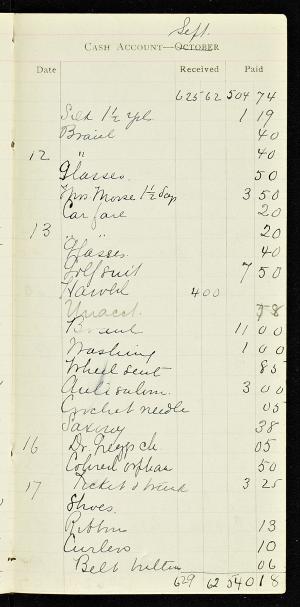 Sept.
CASH ACCOUNT—OCTOBER
Date Received Paid
625 62 504 74
Silk 1 1/2 yds 1 19
Braid 40
12 " 40
Glasses. 50
Mrs Morse 1 1/2 day 3 50
Car fare 20
13 " 20
Glasses. 40
Golf suit 7 50
Harold 4 00
Unacct. 78
11 00
Washing 1 00
Wheel sent 85
3 00
Crochet needle 05
Saxony 38
16 Dr. 05
Colored orphan 50
17 Ticket & 3 25
Shoes.
Ribbon 13
Curlers 10
Belt 06
629 62 540 18